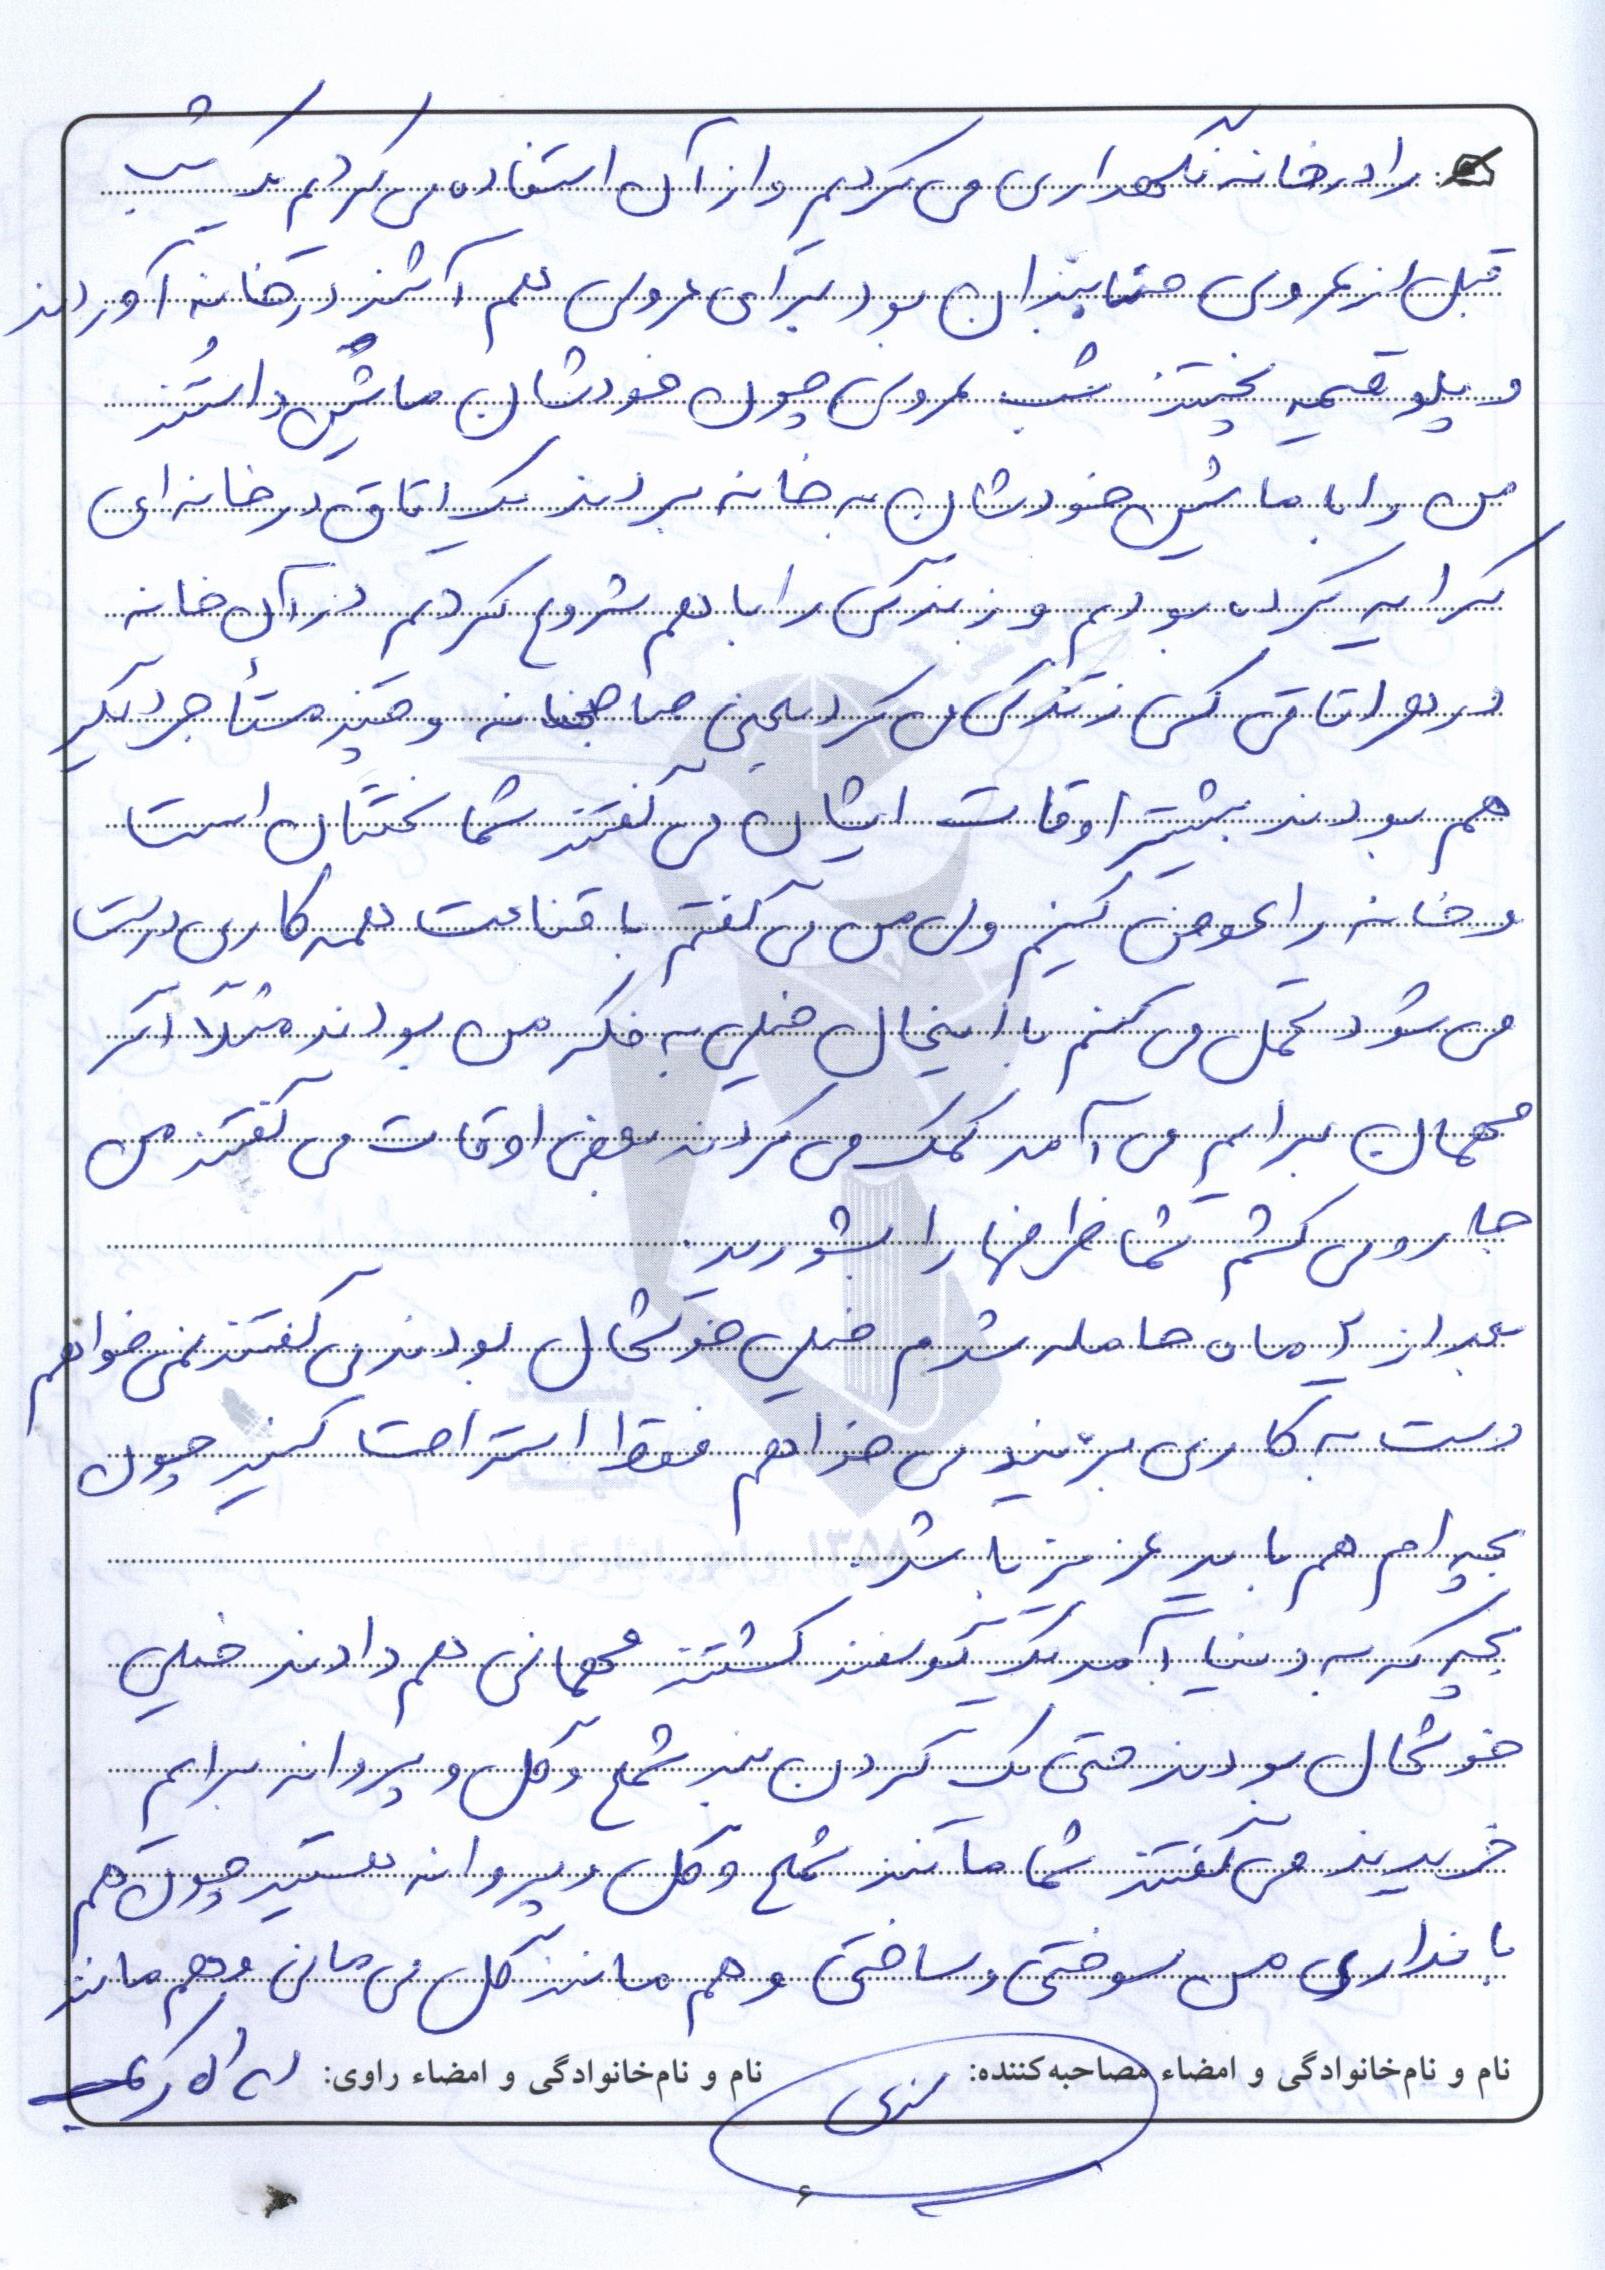 را در خانه نگهداری می کردیم و از آن استفاده می کردیم یک شب
قبل از عروسی حنابندان بود برای عروسی هم آشپز در خانه آوردند
و پلو قیمه پختند شب عروسی چون خودشان ماشین داشتند
من را با ماشین خودشان به خانه بردند یک اتاق در خانه ای
کرایه کرده بودیم و زندگی را با هم شروع کردیم در آن خانه
در هر اتاقی کسی زندگی می کرد یعنی صاحبخانه و چند مستأجر دیگر
هم بودند بیشتر اوقات ایشان می گفتند شما سختتان است
و خانه را عوض کنیم ولی من می گفتم با قناعت همه کاری درست
می شود تحمل می کنم با اینحال خیلی به فکر من بودند مثلاً اگر
مهمان برایم می آمد کمک می کردند بعضی اوقات می گفتند من
جارو می کشم شما ظرفها را بشورید.
بعد از ۲ ماه حامله شدم خیلی خوشحال بودند می گفتند نمی خواهم
دست به کاری بزنید می خواهم فقط استراحت کنید چون
بچه ام هم باید عزیز باشد.
بچه که به دنیا آمد یک گوسفند کشتند مهمانی هم دادند خیلی
خوشحال بودند حتی یک گردن بند شمع و گل و پروانه برایم
خریدند می گفتند شما مانند شمع و گل و پروانه هستید چون هم
با نداری من سوختی و ساختی و هم مانند گل می مانی و هم مانند
نام و نام‌خانوادگی و امضاء مصاحبه‌کننده: نام و نام‌خانوادگی و امضاء راوی:
۶